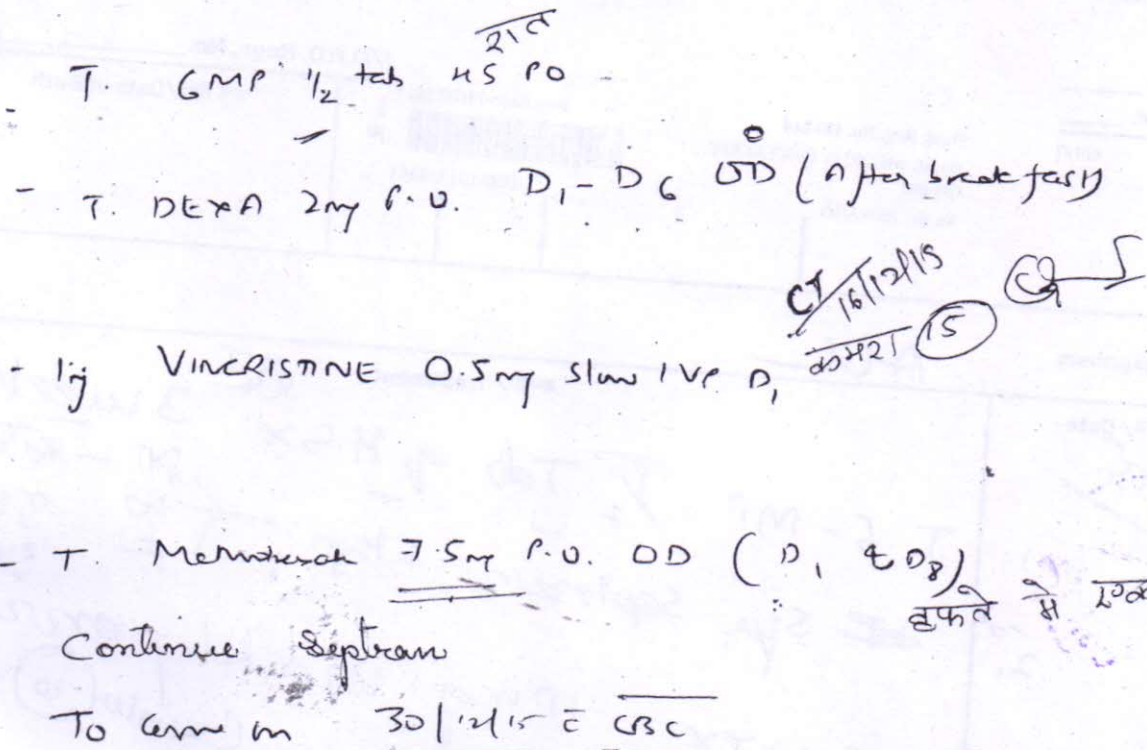 रात
T. 6MP 1/2 tab HS PO
- T. DEXA 2mg P.O. D1 - D6 OD (After breakfast)
CT 16/12/15
कमरा 15
- Inj VINCRISTINE 0.5mg slow IVP D1
- T. Methotrexate 7.5mg P.O. OD (D1 & D8)
हफ्ते में
Continue Septran
To come on 30/12/15 c̄ CBC